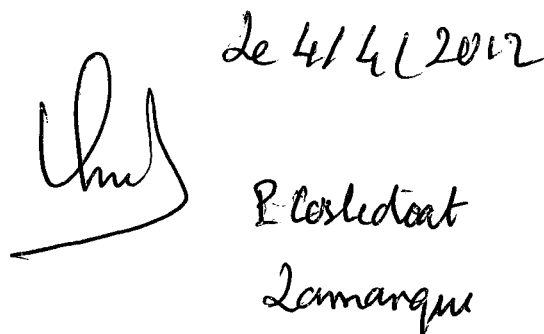 Le 4/4/2012
P. Costedoat
Lamarque